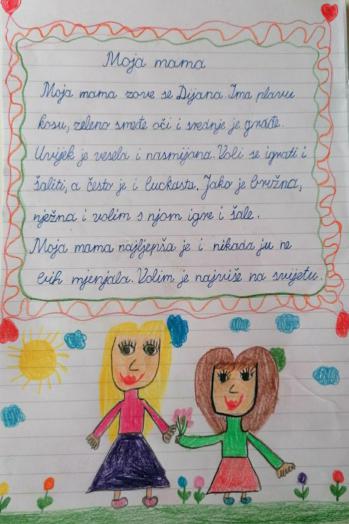 Moja mama
Moja mama zove se Dijana. Ima plavu
kosu, zeleno smeđe oči i srednje je građe.
Uvijek je vesela i nasmijana. Voli se igrati i
šaliti, a često je i luckasta. Jako je brižna,
nježna i volim s njom igre i šale.
Moja mama najljepša je i nikada ju ne
bih mjenjala. Volim je najviše na svijetu.